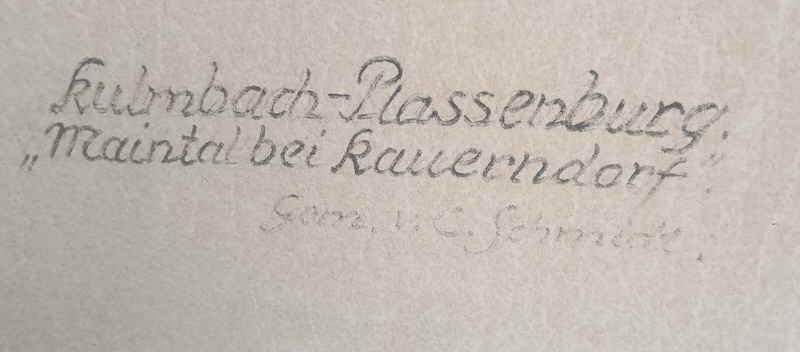 Kulmbach-Plassenburg.
„Maintal bei Kauerndorf".
Gem. v. C. Schmidt.